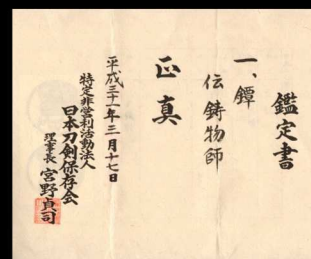 鑑定書
一、鐔
伝鋳物師
正真
平成三十一年三月十七日
特定非営利活動法人
日本刀剣保存会
理事長 宮野貞司